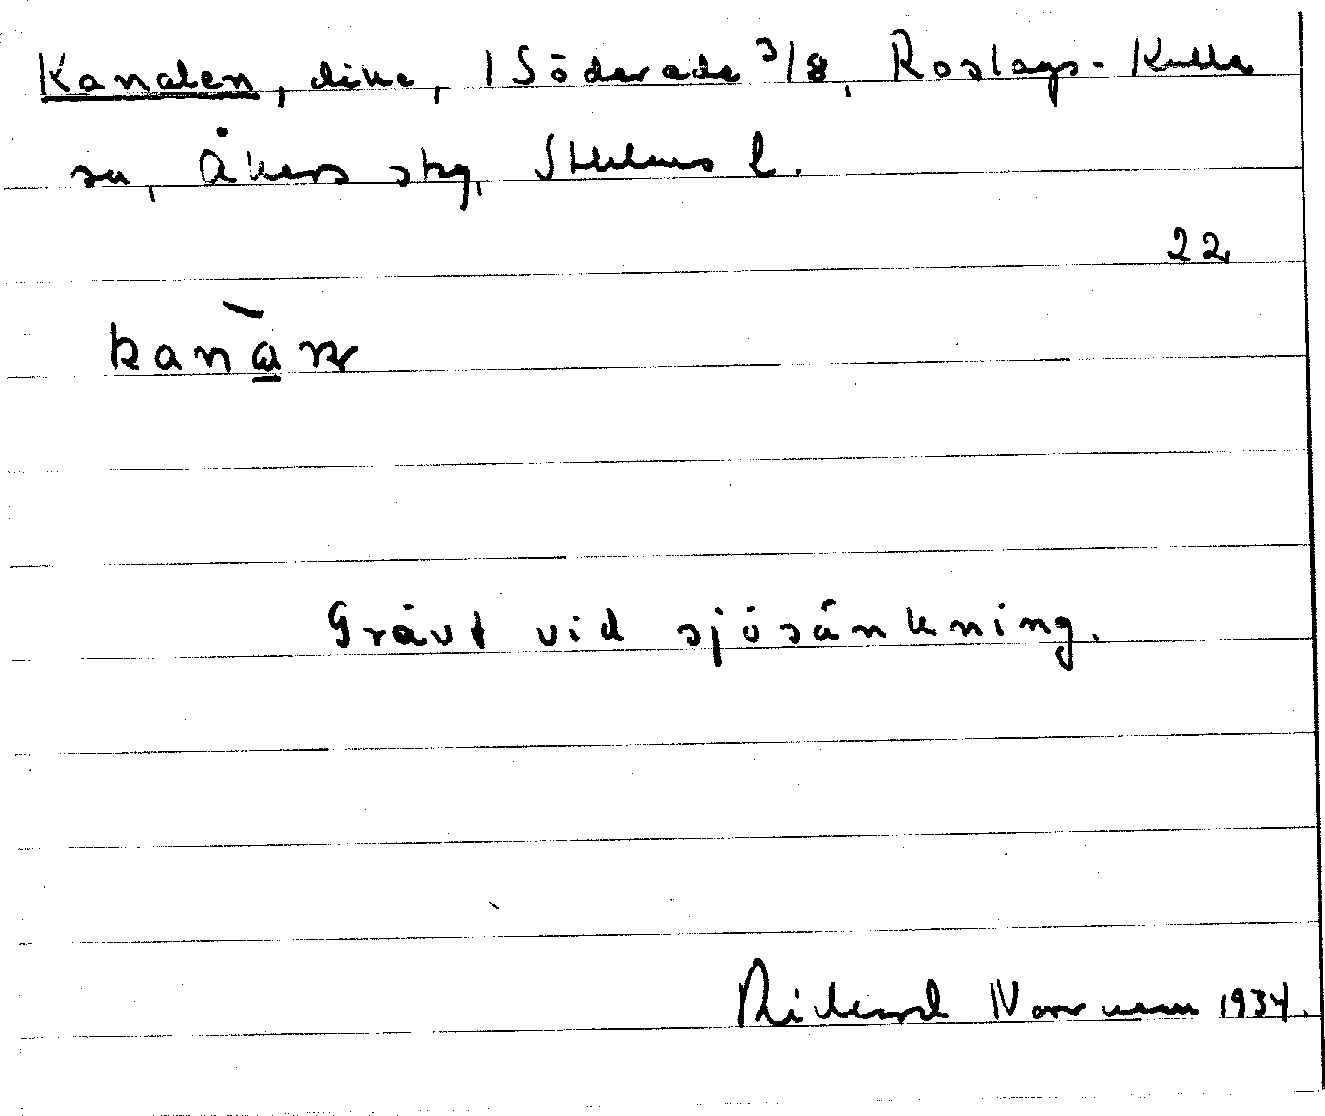 Kanalen, dike, 1 Söderede 3/8, Roslags-Kulla
sn, Åkers skg, Sthlms l.
22
kanàn
Grävt vid sjösänkning.
Rickard Norrman 1934.